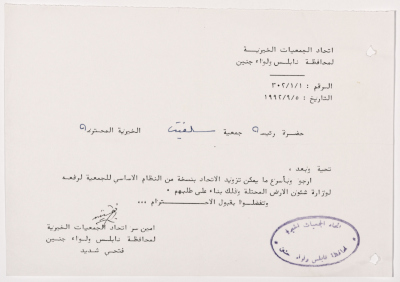 اتحاد الجمعيات الخيرية
لمحافظة نابلس ولواء جنين
الرقم : ٣٠٢/١/١
التاريخ : ١٩٩٢/٩/٥
حضرة رئيسة جمعية سلفيت الخيرية المحترمة
تحية وبعد ،
ارجو وبأسرع ما يمكن تزويد الاتحاد بنسخة من النظام الاساسي للجمعية لرفعه
لوزارة شئون الارض المحتلة وذلك بناء على طلبهم ٠
وتفضلوا بقبول الاحترام ٠٠٠
امين سر اتحاد الجمعيات الخيرية
لمحافظة نابلس ولواء جنين
فتحي شديد
اتحاد الجمعيات الخيرية
محافظة نابلس ولواء جنين